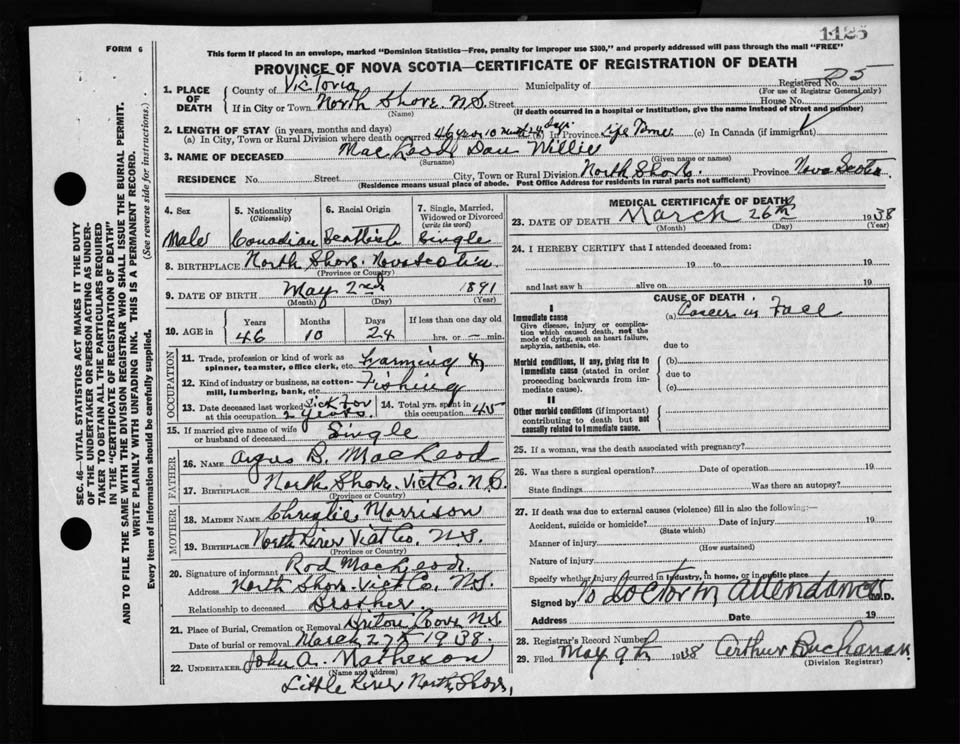 1125
FORM 6
This form if placed in an envelope, marked "Dominion Statistics—Free, penalty for improper use $300," and properly addressed will pass through the mail "FREE"
PROVINCE OF NOVA SCOTIA—CERTIFICATE OF REGISTRATION OF DEATH
SEC. 46—VITAL STATISTICS ACT MAKES IT THE DUTY
OF THE UNDERTAKER OR PERSON ACTING AS UNDER-
TAKER TO OBTAIN ALL THE PARTICULARS REQUIRED
IN THE "CERTIFICATE OF REGISTRATION OF DEATH"
AND TO FILE THE SAME WITH THE DIVISION REGISTRAR WHO SHALL ISSUE THE BURIAL PERMIT.
WRITE PLAINLY WITH UNFADING INK. THIS IS A PERMANENT RECORD.
Every item of information should be carefully supplied. (See reverse side for instructions.)
1. PLACE OF DEATH
County of Victoria Municipality of Registered No. D5
(For use of Registrar General only)
If in City or Town North Shore. N.S. Street House No.
(Name) (If death occurred in a hospital or institution, give the name instead of street and number)
2. LENGTH OF STAY (in years, months and days)
(a) In City, Town or Rural Division where death occurred 46 yrs 10 24 days. In Province Life Time (c) In Canada (if immigrant)
3. NAME OF DECEASED MacLeod Dan Willie
(Surname) (Given name or names)
RESIDENCE No. Street City, Town or Rural Division North Shore. Province Nova Scotia
(Residence means usual place of abode. Post Office Address for residents in rural parts not sufficient)
4. Sex 5. Nationality (Citizenship) 6. Racial Origin 7. Single, Married, Widowed or Divorced (write the word)
Male Canadian Scottish Single
8. BIRTHPLACE North Shore. Nova Scotia
(Province or Country)
9. DATE OF BIRTH May 2nd 1891
(Month) (Day) (Year)
10. AGE in Years Months Days If less than one day old
46 10 24 hrs. or min.
OCCUPATION
11. Trade, profession or kind of work as spinner, teamster, office clerk, etc. Farming &
12. Kind of industry or business, as cotton-mill, lumbering, bank, etc. Fishing
13. Date deceased last worked at this occupation Sick for 2 years. 14. Total yrs. spent in this occupation 45
15. If married give name of wife or husband of deceased Single
FATHER
16. NAME Angus B. MacLeod
17. BIRTHPLACE North Shore. Vict Co. N.S.
(Province or Country)
MOTHER
18. MAIDEN NAME Christie Morrison
19. BIRTHPLACE North River Vict Co. N.S.
(Province or Country)
20. Signature of informant Rod MacLeod.
Address North Shore. Vict Co. N.S.
Relationship to deceased Brother.
21. Place of Burial, Cremation or Removal Cove N.S.
Date of burial or removal March 27th 1938.
22. UNDERTAKER John A. Matheson
(Name and address)
Little River North Shore,
MEDICAL CERTIFICATE OF DEATH
23. DATE OF DEATH March 26th 1938
(Month) (Day) (Year)
24. I HEREBY CERTIFY that I attended deceased from:
19 to 19
and last saw h alive on 19
CAUSE OF DEATH
I
Immediate cause (a) Cancer in Face
Give disease, injury or complication which caused death, not the mode of dying, such as heart failure, asphyxia, asthenia, etc.
due to
Morbid conditions, if any, giving rise to immediate cause (stated in order proceeding backwards from immediate cause). (b)
due to
(c)
II
Other morbid conditions (if important) contributing to death but not causally related to immediate cause.
25. If a woman, was the death associated with pregnancy?
26. Was there a surgical operation? Date of operation 19
State findings Was there an autopsy?
27. If death was due to external causes (violence) fill in also the following:—
Accident, suicide or homicide? Date of injury 19
(State which)
Manner of injury
(How sustained)
Nature of injury
Specify whether injury occurred in industry, in home, or in public place
Signed by No Doctor in attendance M.D.
Address Date 19
28. Registrar's Record Number
29. Filed May 9th 1938 Arthur Buchanan
(Division Registrar)